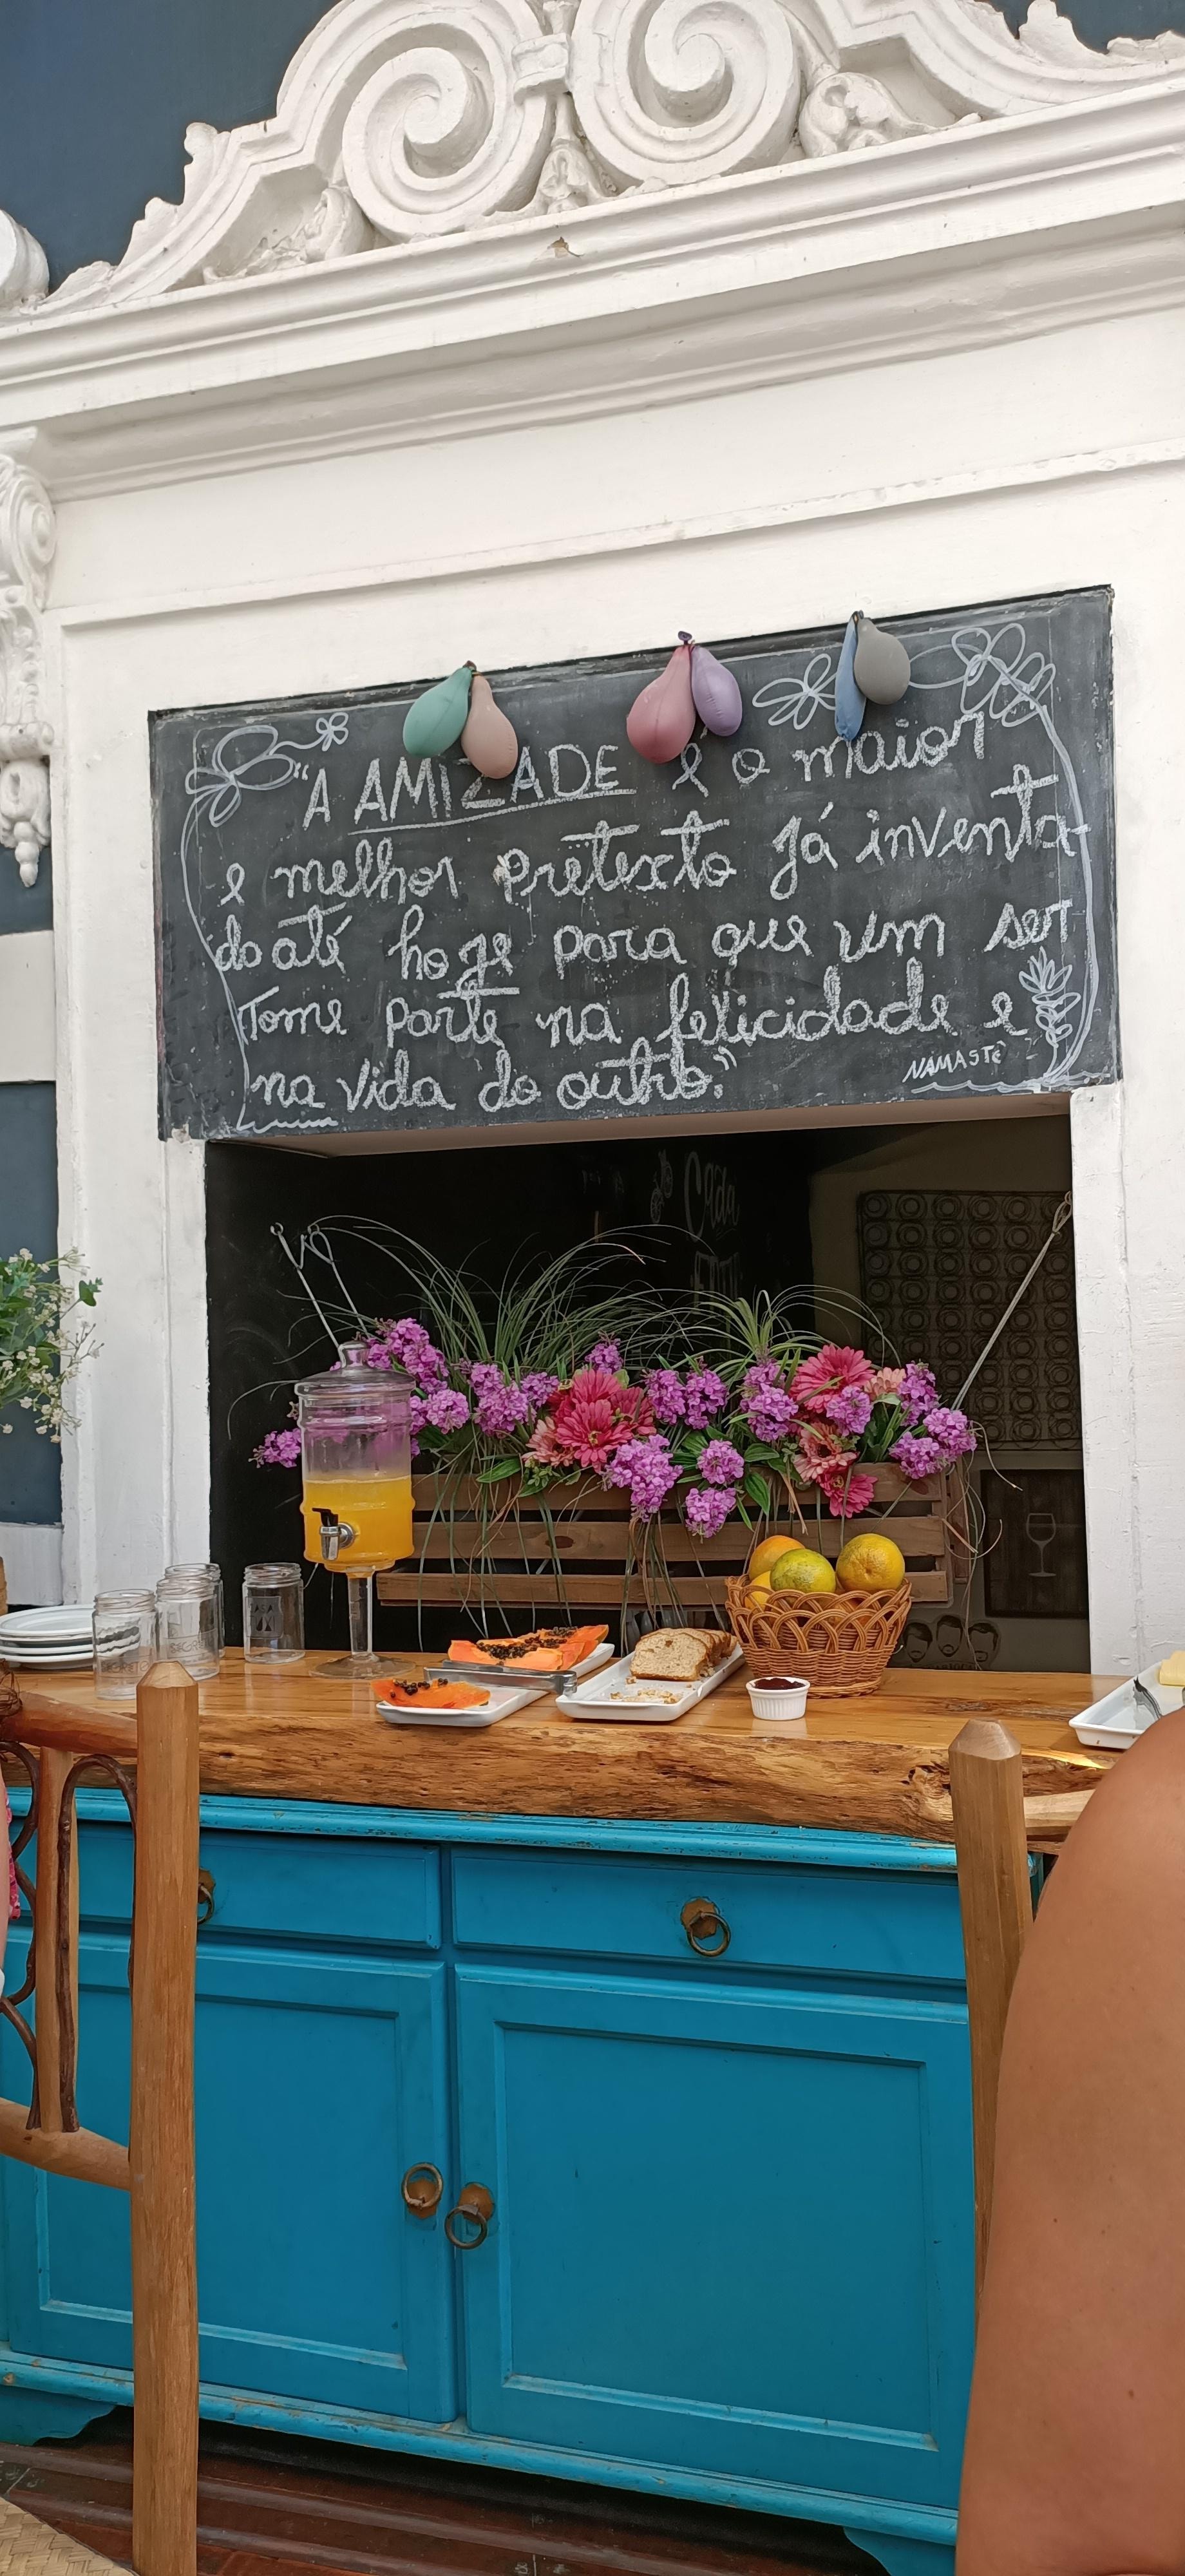 "A AMIZADE é o maior
e melhor pretexto já inventa-
do até hoje para que um ser
Tome parte na felicidade e
na vida do outro."
NAMASTÊ
Cada